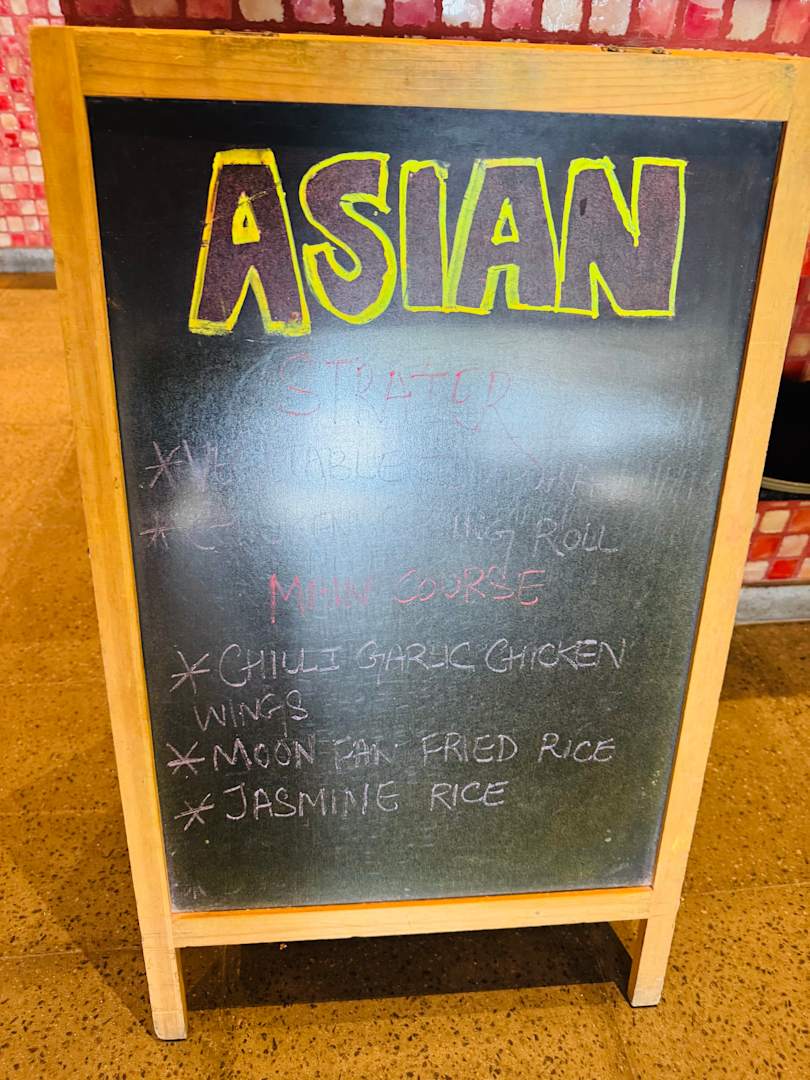 ASIAN
STRATER
*VEGETABLE
* SPRING ROLL
MAIN COURSE
* CHILLI GARLIC CHICKEN
WINGS
* MOON FAN FRIED RICE
* JASMINE RICE